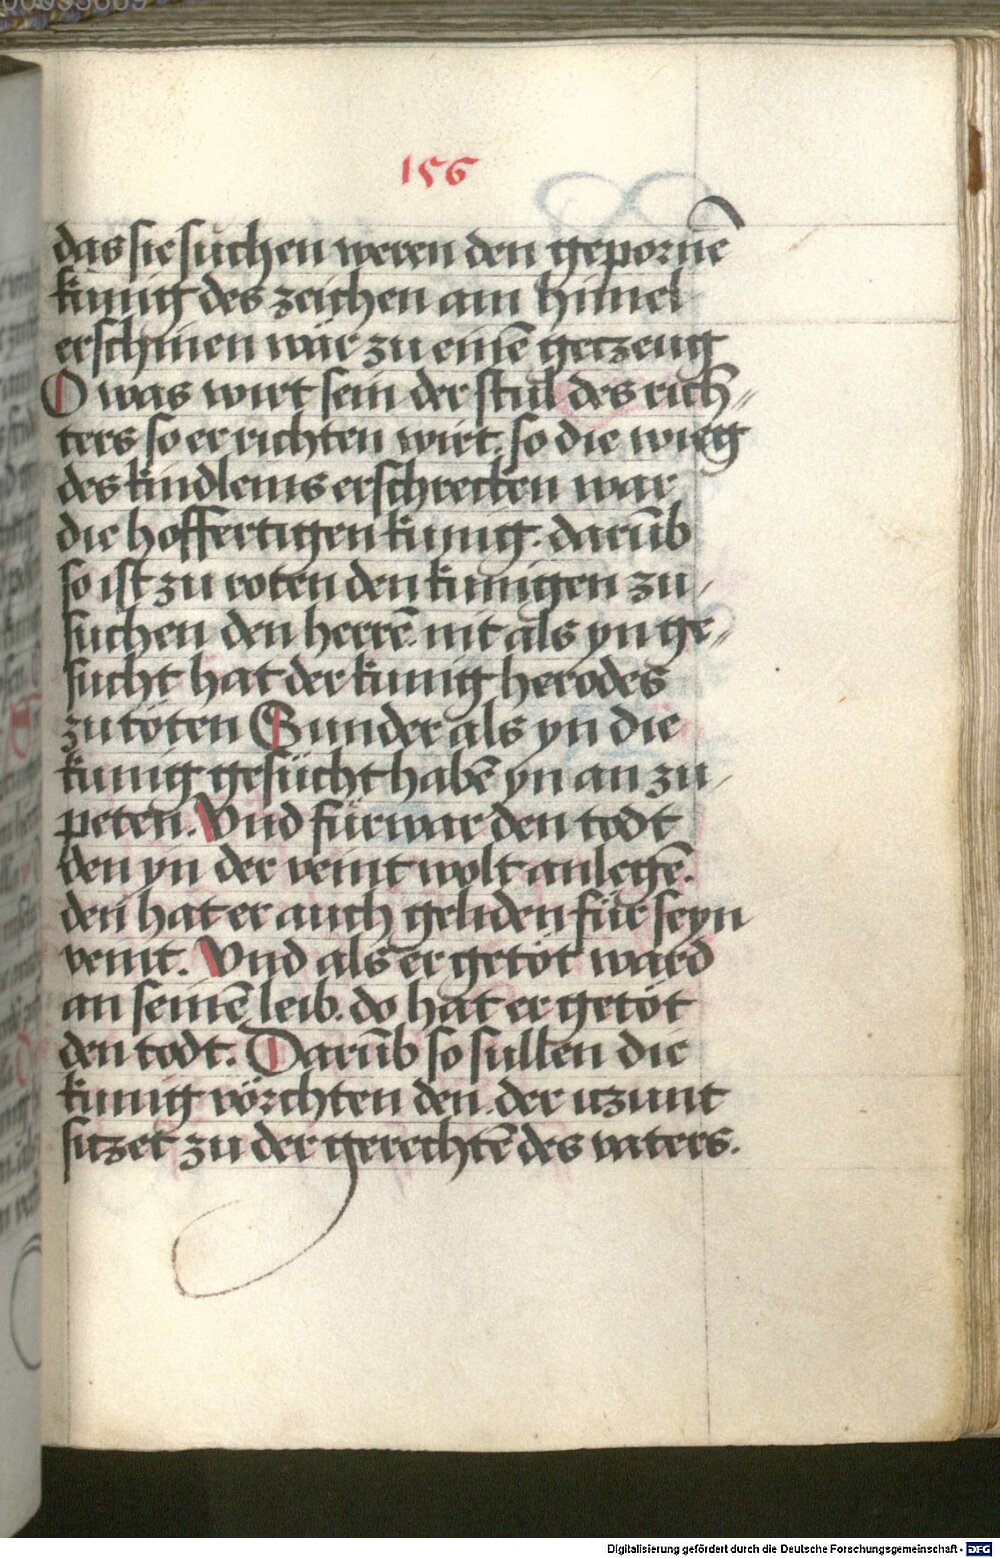 156
das sie suchen weren den gepornē
kunig des zeichen am himel
erschinen wär zu einē getzeug
O was wirt sein der stůl des rich̄„
ters so er richten wirt. so die wieg
des kindleins erschrecken war
die hoffertigen kunig. darūb
so ist zu roten den kunigen zu„
suchen den herrē. nit als yn ge„
sucht hat der kunig herodes
zu töten Sunder als yn die
kunig gesücht habē yn an zu„
peten. Vnd fürwar den todt
den yn der veint wolt anlegē.
den hat er auch geliden für seyn
veint. Vnd als er getöt ward
an seinē leib. do hat er getöt
den todt. Darūb so sullen die
kunig vörchten den. der itzunt
sitzet zu der gerechtē des vaters.
Digitalisierung gefördert durch die Deutsche Forschungsgemeinschaft - DFG